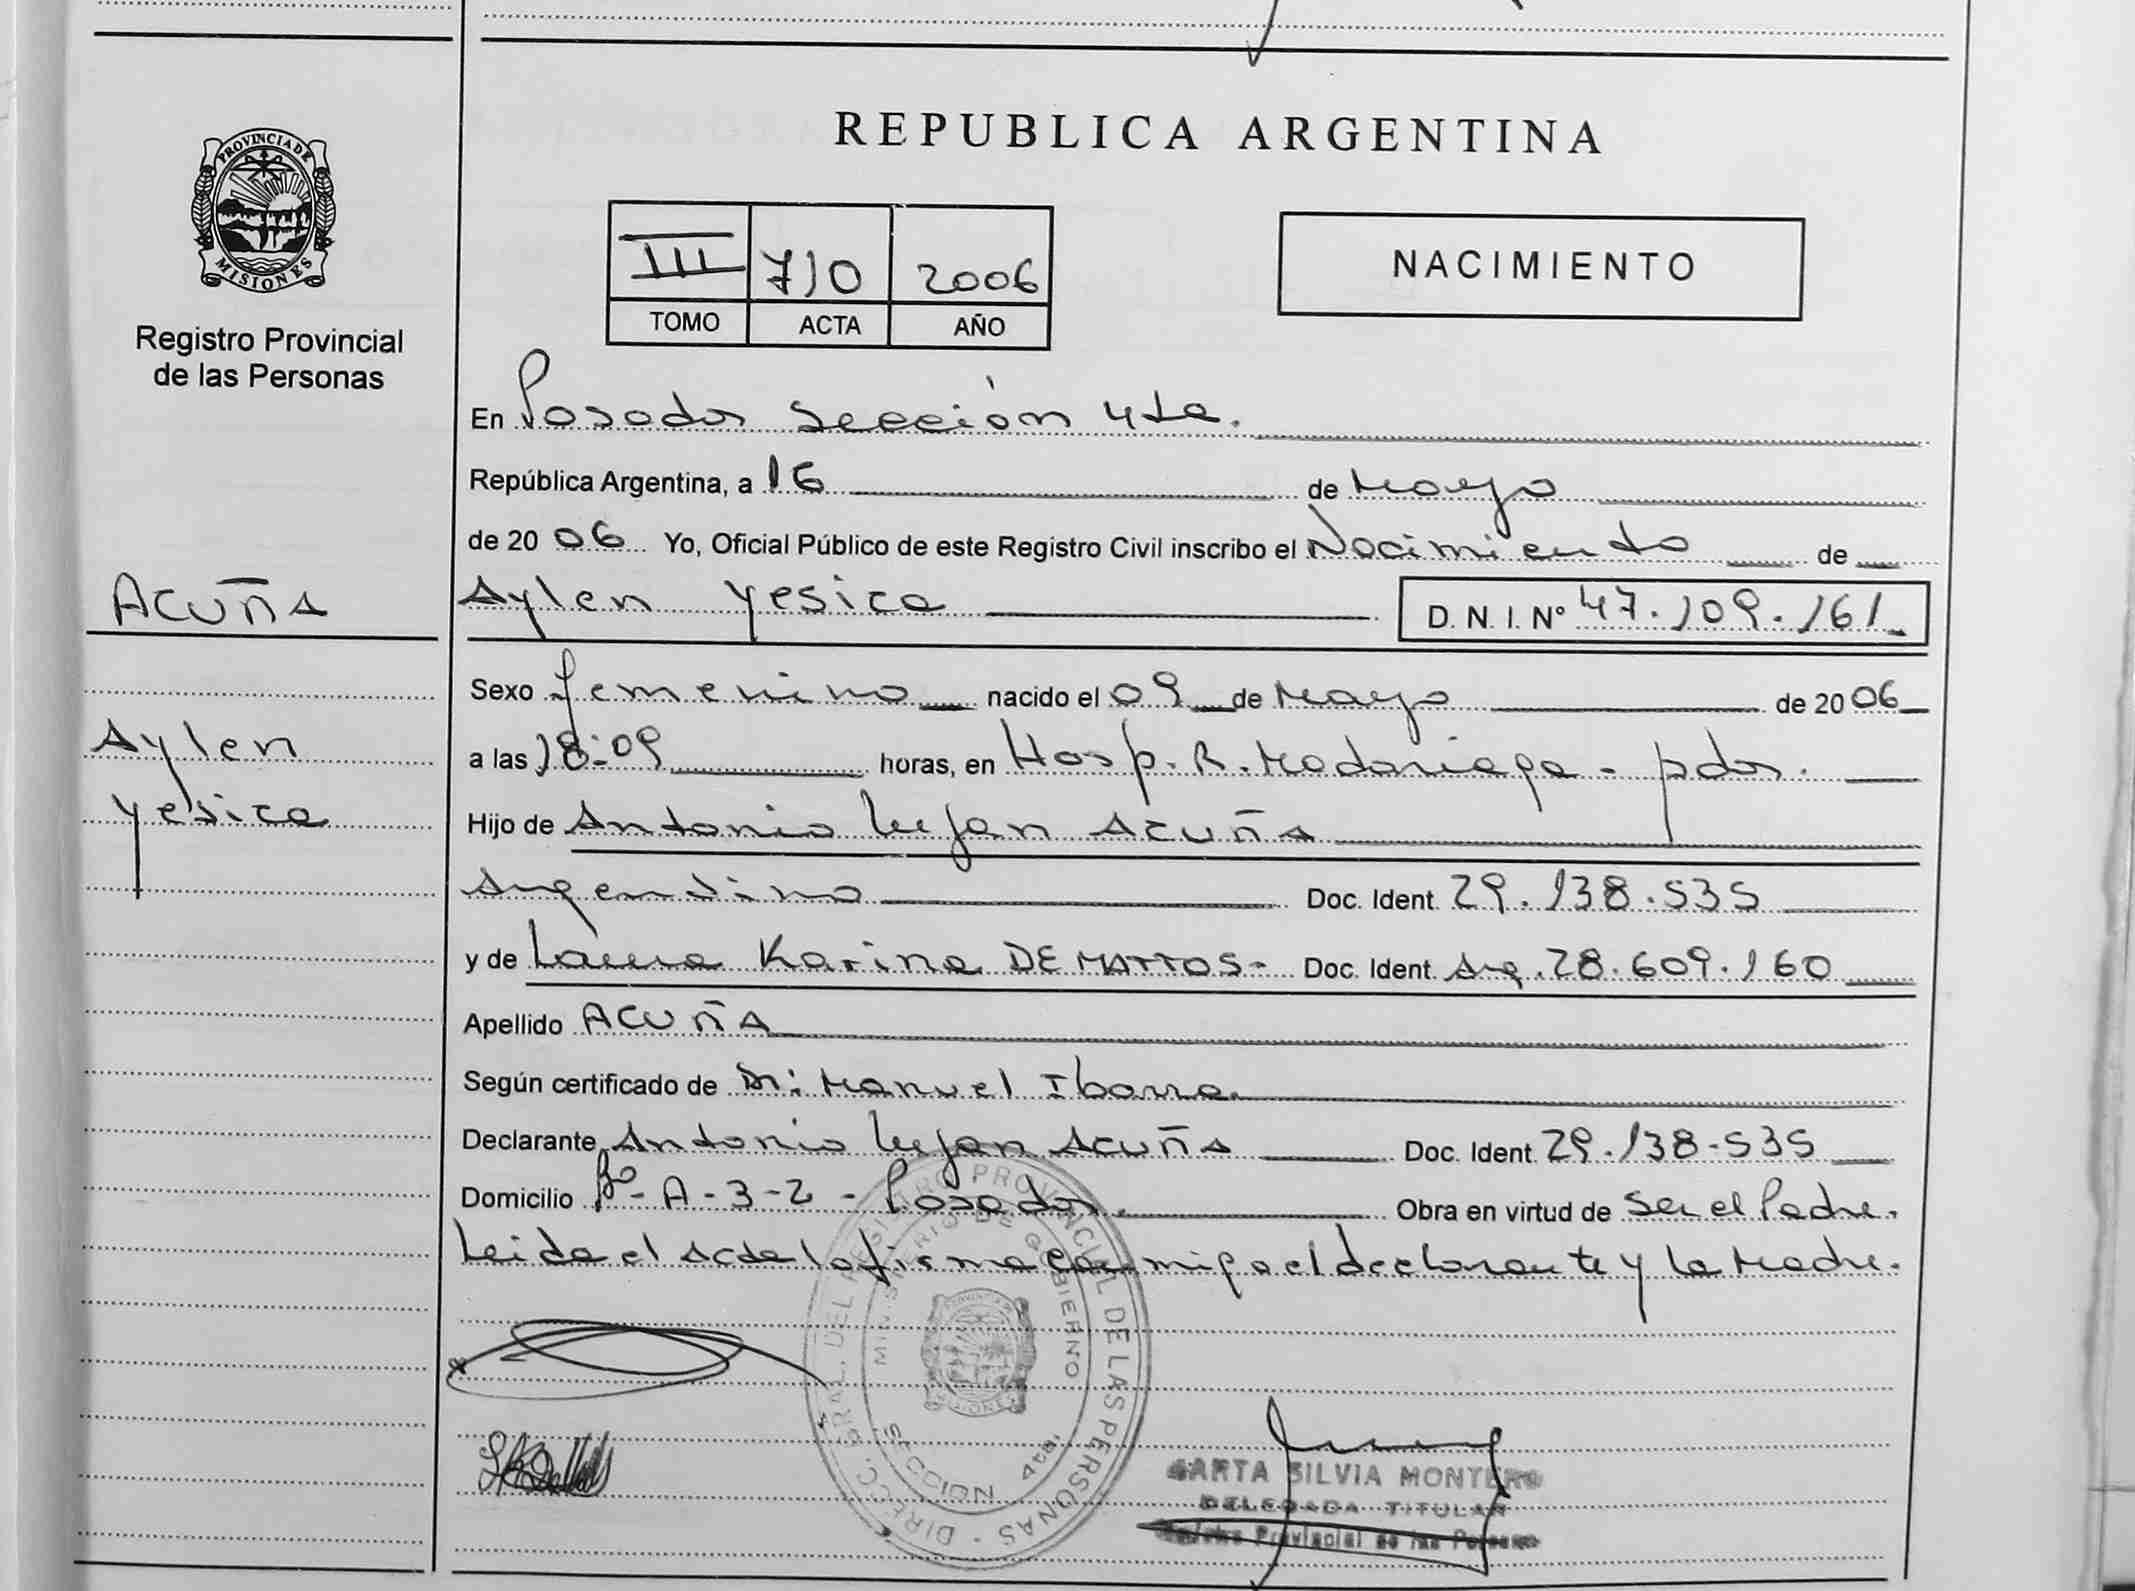 REPUBLICA ARGENTINA
PROVINCIA DE
MISIONES
Registro Provincial
de las Personas
III 710 2006
TOMO ACTA AÑO
NACIMIENTO
En Posadas Sección 4ta.
República Argentina, a 16 de Mayo
de 20 06 Yo, Oficial Público de este Registro Civil inscribo el Nacimiento de
ACUÑA
Aylen Yesica D. N. I. Nº 47.109.161
Sexo femenino nacido el 09 de Mayo de 20 06
Aylen
a las 18:09 horas, en Hosp. R. Madariaga - pdas.
Yesica
Hijo de Antonio Lujan ACUÑA
Argentino Doc. Ident. 29.138.535
y de Laura Karina DE MATTOS - Doc. Ident. Arg. 28.609.160
Apellido ACUÑA
Según certificado de Dr: Manuel Ibarra.
Declarante Antonio Lujan Acuña Doc. Ident. 29.138-535
Domicilio Bº - A-3-2 - Posadas. Obra en virtud de ser el Padre.
Leida el Acta la firma conmigo el declarante y la Madre.
DIRECC. GRAL. DEL REGISTRO PROVINCIAL DE LAS PERSONAS
MINISTERIO DE GOBIERNO
PROVINCIA DE
MISIONES
SECCION 4ta.
MARTA SILVIA MONTERO
DELEGADA TITULAR
Registro Provincial de las Personas